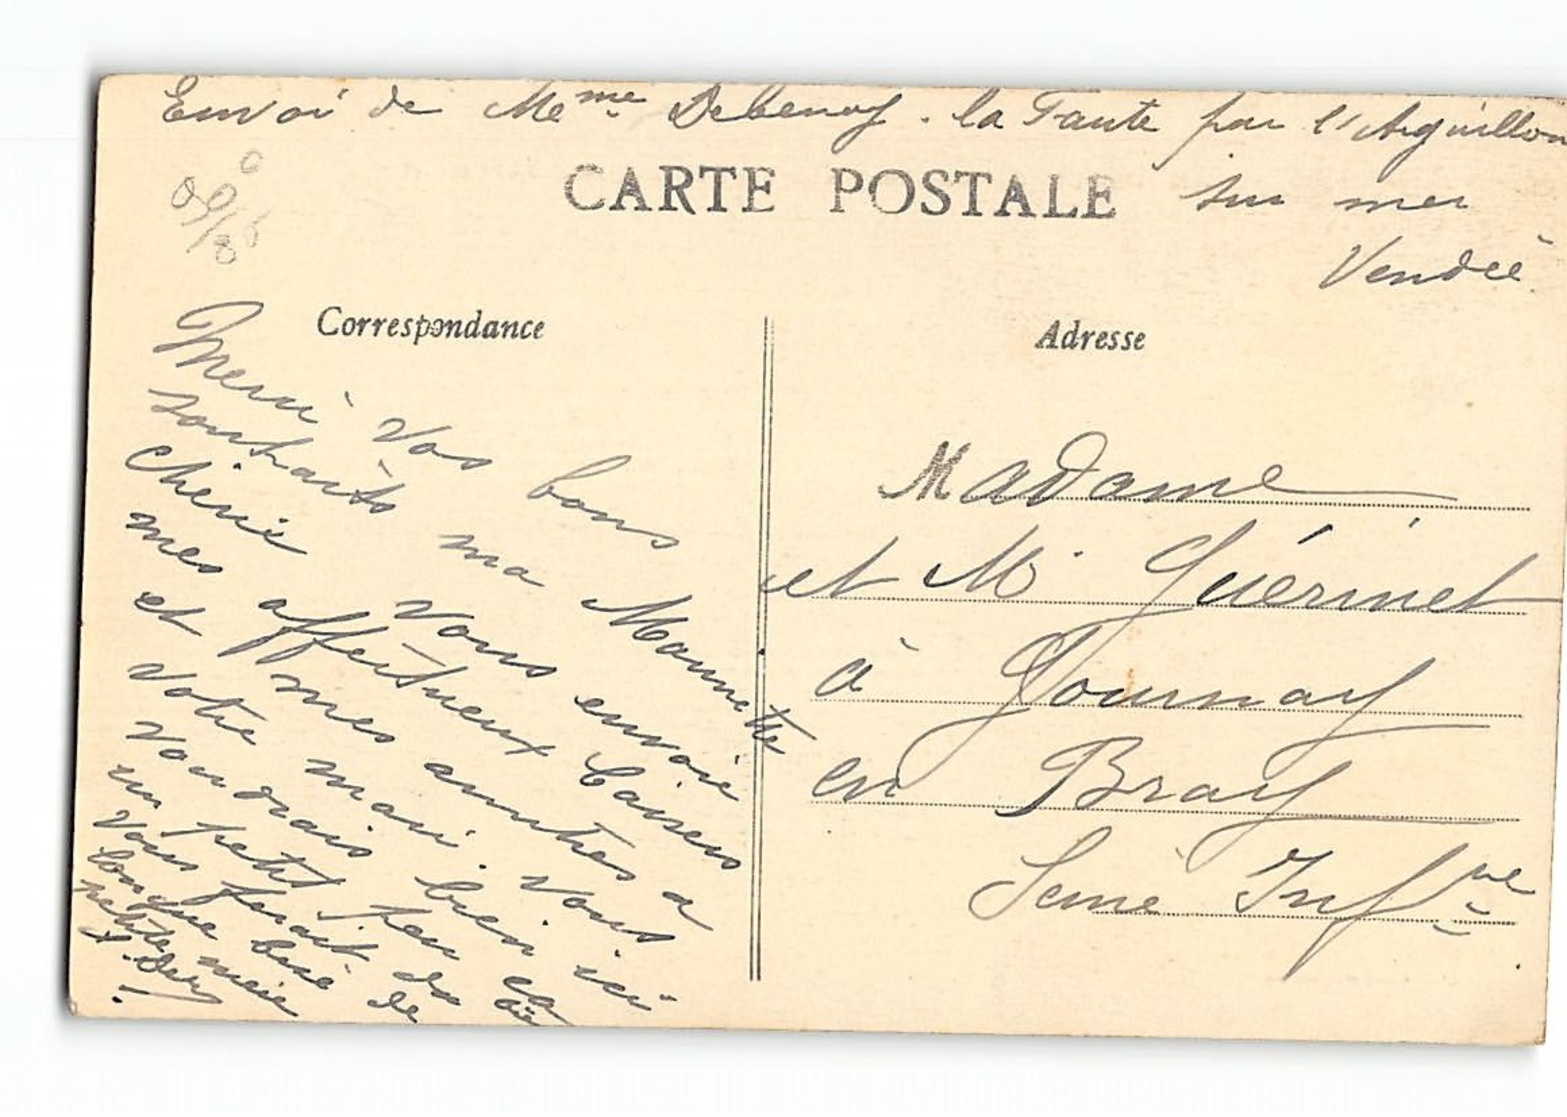 Envoi de Mme Debenoy. la Faute par l'Aiguillon
sur mer
Vendée
CARTE POSTALE
Correspondance
Adresse
Merci vos bons
souhaits ma Mounette
chérie vous envoie
mes affectueux baisers
et mes amitiés à
votre mari. vous
voudrais bien ici
un petit peu ça
vous ferait du
longue bise de
petite
Madame
et M. Guérinet
à Gournay
en Bray
Seine Infre